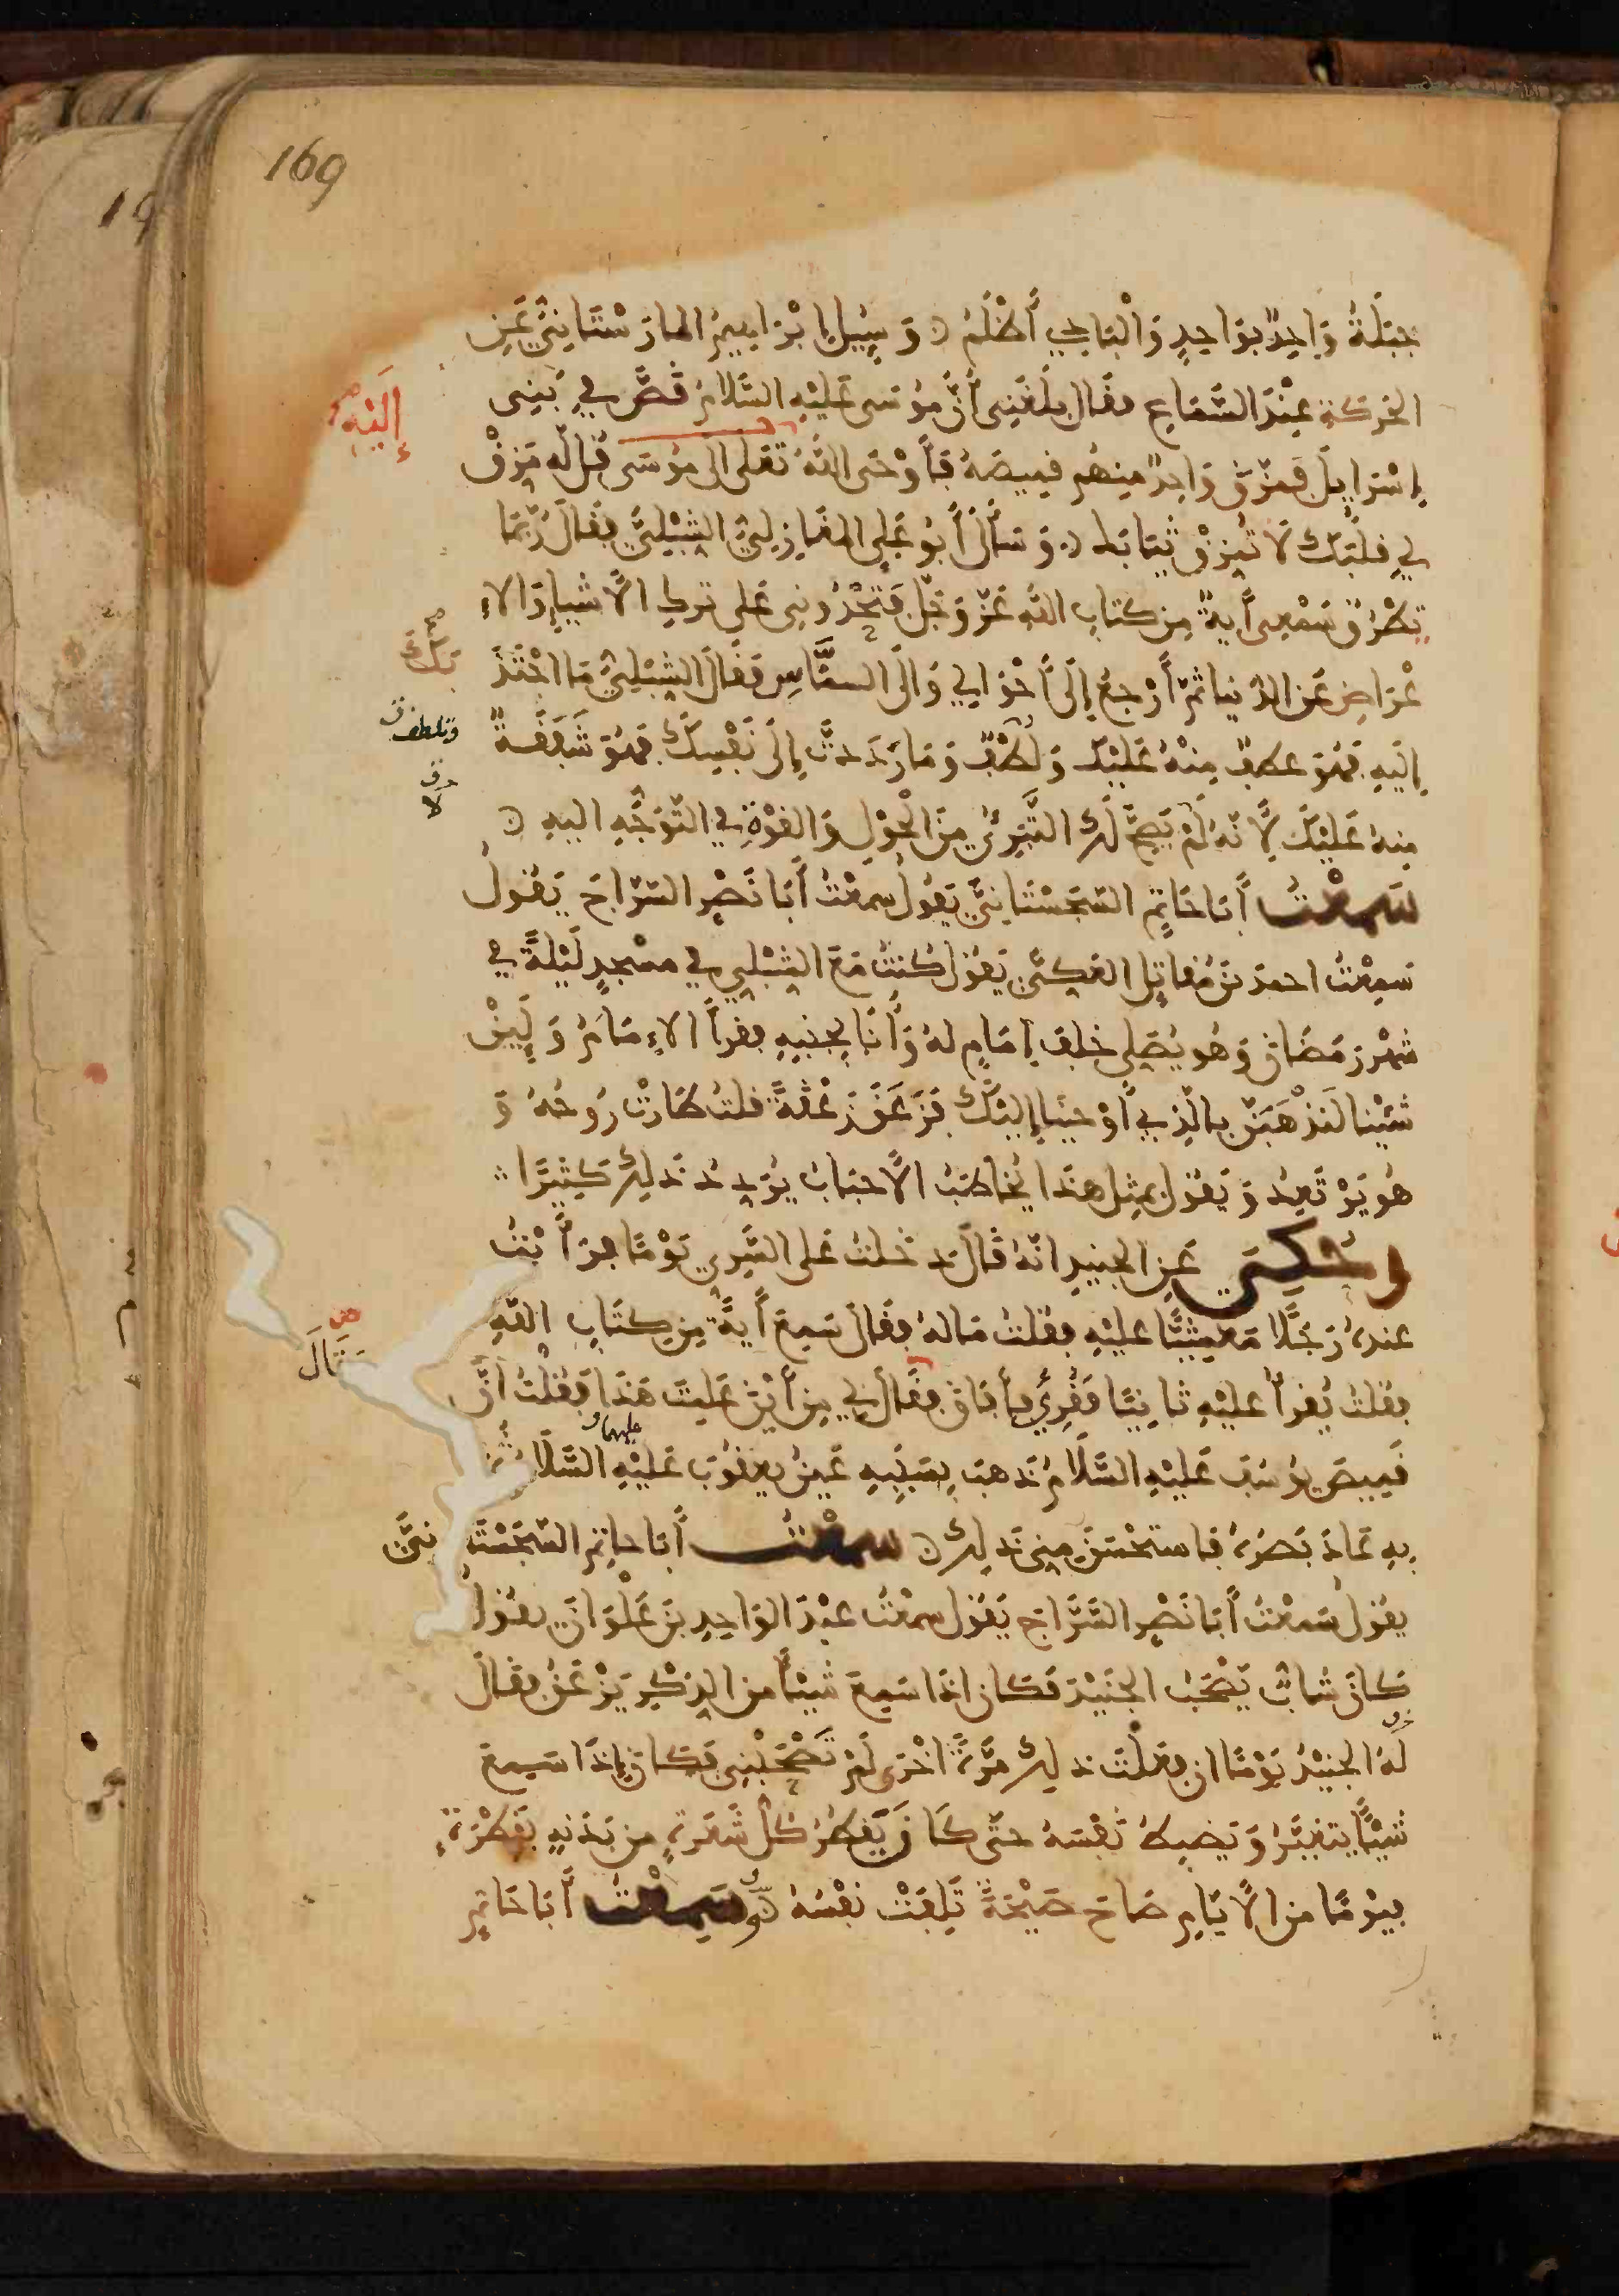 169
فَجَبْلَةٌ وَاحِدٌ بوَاحِدٍ وَالْبَادِي أَظْلَمُ وَسُئِلَ إبْرَاهِيمُ المَارَسْتَانِيُّ عَنِ
الحَرَكَةِ عِنْدَ السَّمَاعِ فقَالَ بلَغَنِى أَنَّ مُوسَى عَلَيْهِ السَّلَامُ قَصَّ في بَنِى
إِلَيْهِ صح
إِسْرَايِلَ فَمَزَّقَ وَاحِدٌ مِنهُم قميصَهُ فَأَوْحَى اللهُ تَعَلى الى مُوسَى قُل لَه مَزِّقْ
لِي قلْبَكَ لَا تُمَزِّقْ ثِيَابَكَ وَسَأَلَ أَبُو عَلِي المَغَازِلِيُّ الشِّبْلِيَّ فَقَالَ رُبَّمَا
يَطْرُقُ سَمْعِى أَيةٌ مِن كتَابِ اللهِ عَزَّ وَجَلَّ فَتَحْدُونِى عَلى تَركِ الأَشْيَاءِ وَالاِ
عْرَاضِ عَنِ الدُّنيَا ثمَّ أَرْجِعُ إِلَى أَحْوَالِي وَالَى النَّاسِ فَقَالَ الشِّبْلِيُّ مَا اجْتَذَ
بَكَ صح
إِلَيْهِ فَهُوَ عطفٌ مِنْهُ عَلَيْكَ وَلُطْفٌ وَمَا رَدَدتَّ إِلَى نَفْسِكَ فَهُوَ شَفَقَةٌ
منهُ عَلَيْكَ لِأَنَّهُ لَمْ يَصِحَّ لَكَ التَّبَرِّئُ مِنَ الْحَوْلِ وَالقُوَّةِ في التَّوَجُّهِ اليهِ
سَمِعْتُ أَبَا حَاتِمٍ السِّجِسْتَانِيَّ يَقُولُ سَمِعْتُ أَبَا نَصْرٍ السَّرَّاجَ يَقُولُ
سَمِعْتُ احمدَ بنَ مُقَاتِلٍ العَكِّىَّ يَقُولُ كُنتُ مَعَ الشِّبْلِي في مسْجِدٍ لَيْلَةً في
شَهْرِ رَمَضَانَ وَهُو يُصَلِّى خلفَ إِمَامٍ لَهُ وَأَنَا بِجَنبِهِ فقرأَ الاِمَامُ وَلَئِنْ
شئْنا لَنَذْهَبَنَّ بِالَّذِي أَوْحَيْنَا إِلَيْكَ فَزَعَقَ زَعْقَةً قلتُ طَارَتْ رُوحُهُ وَ
هُو يَرْتَعِدُ وَيَقُولُ بمِثْلِ هَذَا يُخَاطَبُ الأَحبَابُ يُرَدِّدُ ذَلِكَ كَثِيرًا
وحُكِىَ عَنِ الجنيدِ انَّهُ قَالَ دَخَلتُ عَلى السَّرِي يَوْمًا فرَأَيْتُ
عندَهُ رَجُلًا مَغْشِيًّا عليْهِ فقُلتُ مَا لهُ فقَالَ سَمِعَ أَيةً مِن كِتَابِ اللهِ
فقلتُ تُقرأُ عليْهِ ثَانِيًا فَقُرِئَ فأَفَاقَ فقَالَ لِي مِن أَيْنَ عَلِمتَ هَذَا فَقُلْتُ انَّ
قَمِيصَ يُوسُفَ عَلَيْهِ السَّلَامُ ذَهبَتْ بِسَبَبِهِ عَيْنُ يعقُوبَ عَلَيْهِ السَّلَامُ ثُمَّ
بِهِ عَادَ بَصَرُهُ فاستَحْسَنَ مِنِّى ذَلِكَ سَمِعْتُ أَبَا حاتِمٍ السِّجِسْتَانِيَّ
يقُولُ سَمِعْتُ أَبَا نَصْرٍ السَّرَّاجَ يَقُولُ سمعْتُ عَبْدَ الوَاحِدِ بْنَ عَلْوَانَ يقُولُ
كَانَ شَابٌّ يَصْحَبُ الجُنَيْدَ فَكَانَ اذَا سَمِعَ شَيْئًا مِنَ الذِّكْرِ يَزْعَقُ فقَالَ
لَهُ الجُنَيْدُ يَوْمًا ان فعَلْتَ ذلِكَ مَرَّةً اخْرَى لَمْ تَصْحَبْنِى فَكَانَ إِذَا سَمِعَ
شَيْئًا يتغَيَّرُ وَيَضبِطُ نَفْسَهُ حتَّى كَانَ يَقْطُرُ كُلُّ شَعَرَةٍ مِن بَدَنِهِ بقَطْرَةٍ
فيَوْمًا مِنَ الأَيَّامِ صَاحَ صَيْحَةً تَلِفَتْ نَفْسُهُ وسَمِعْتُ أَبَا حَاتِمٍ